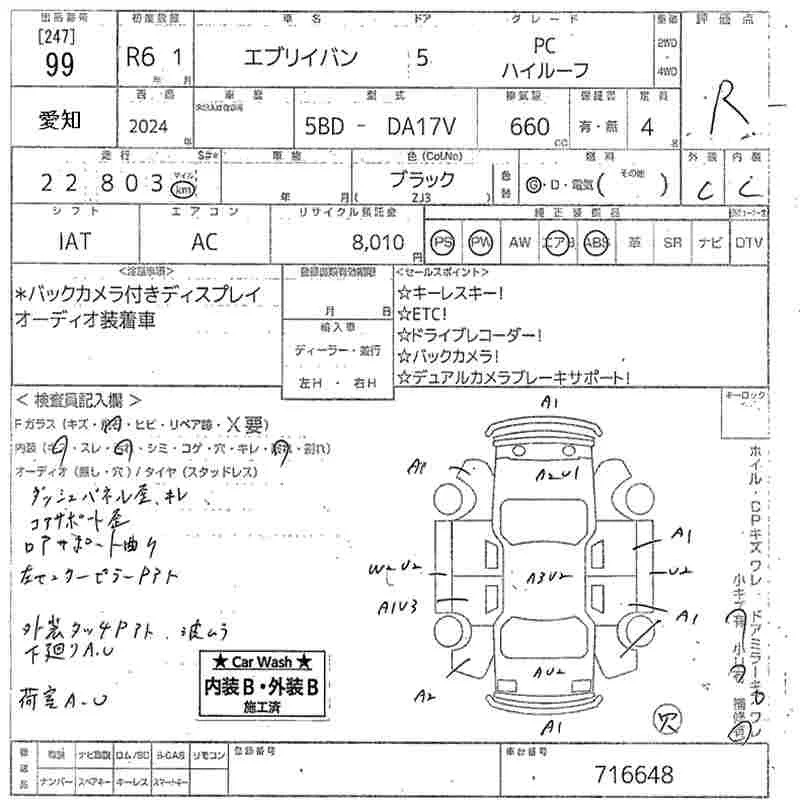 出品番号 初度登録 車名 ドア グレード 駆動 評価点
[247]
99
R6 1
年 月
エブリイバン
5
PC
ハイルーフ
2WD
4WD
R
愛知
2024
年
車歴
型式
5BD - DA17V
排気量
660
cc
保証書
有・無
定員
4
名
走行
22803
マイル
km
年 月
色 (Col.No)
ブラック
( ZJ3 )
燃料
G・D・電気( その他 )
外装 内装
C C
シフト エアコン リサイクル預託金 純正装備品
IAT
AC
8,010
円
PS PW AW エアB ABS 革 SR ナビ DTV
<注意事項>
*バックカメラ付きディスプレイ
オーディオ装着車
月 日
輸入車
ディーラー・並行
左H ・ 右H
<セールスポイント>
☆キーレスキー!
☆ETC!
☆ドライブレコーダー!
☆バックカメラ!
☆デュアルカメラブレーキサポート!
キーロック
< 検査員記入欄 >
Fガラス(キズ・ ・ヒビ・リペア跡・X要)
内装( ・スレ・ ・シミ・コゲ・穴・キレ・ ・割れ)
オーディオ(無し・穴)/タイヤ(スタッドレス)
ダッシュパネル歪、キレ
コアサポート歪
ロアサポート曲り
左センターピラーPアト
外装タッチPアト、波ムラ
下廻りA.U
荷室A.U
★ Car Wash ★
内装B・外装B
施工済
A1
A2U1
A1
W2U2
A3U2
U2
A1U3
A1
A2
AU2
A1
穴
ホイル・CPキズワレ・ドアミラーキズワレ
小キズ有 小U有 補修有
ナンバー スペアキー キーレス スマートキー
リモコン
登録番号
車台番号
716648